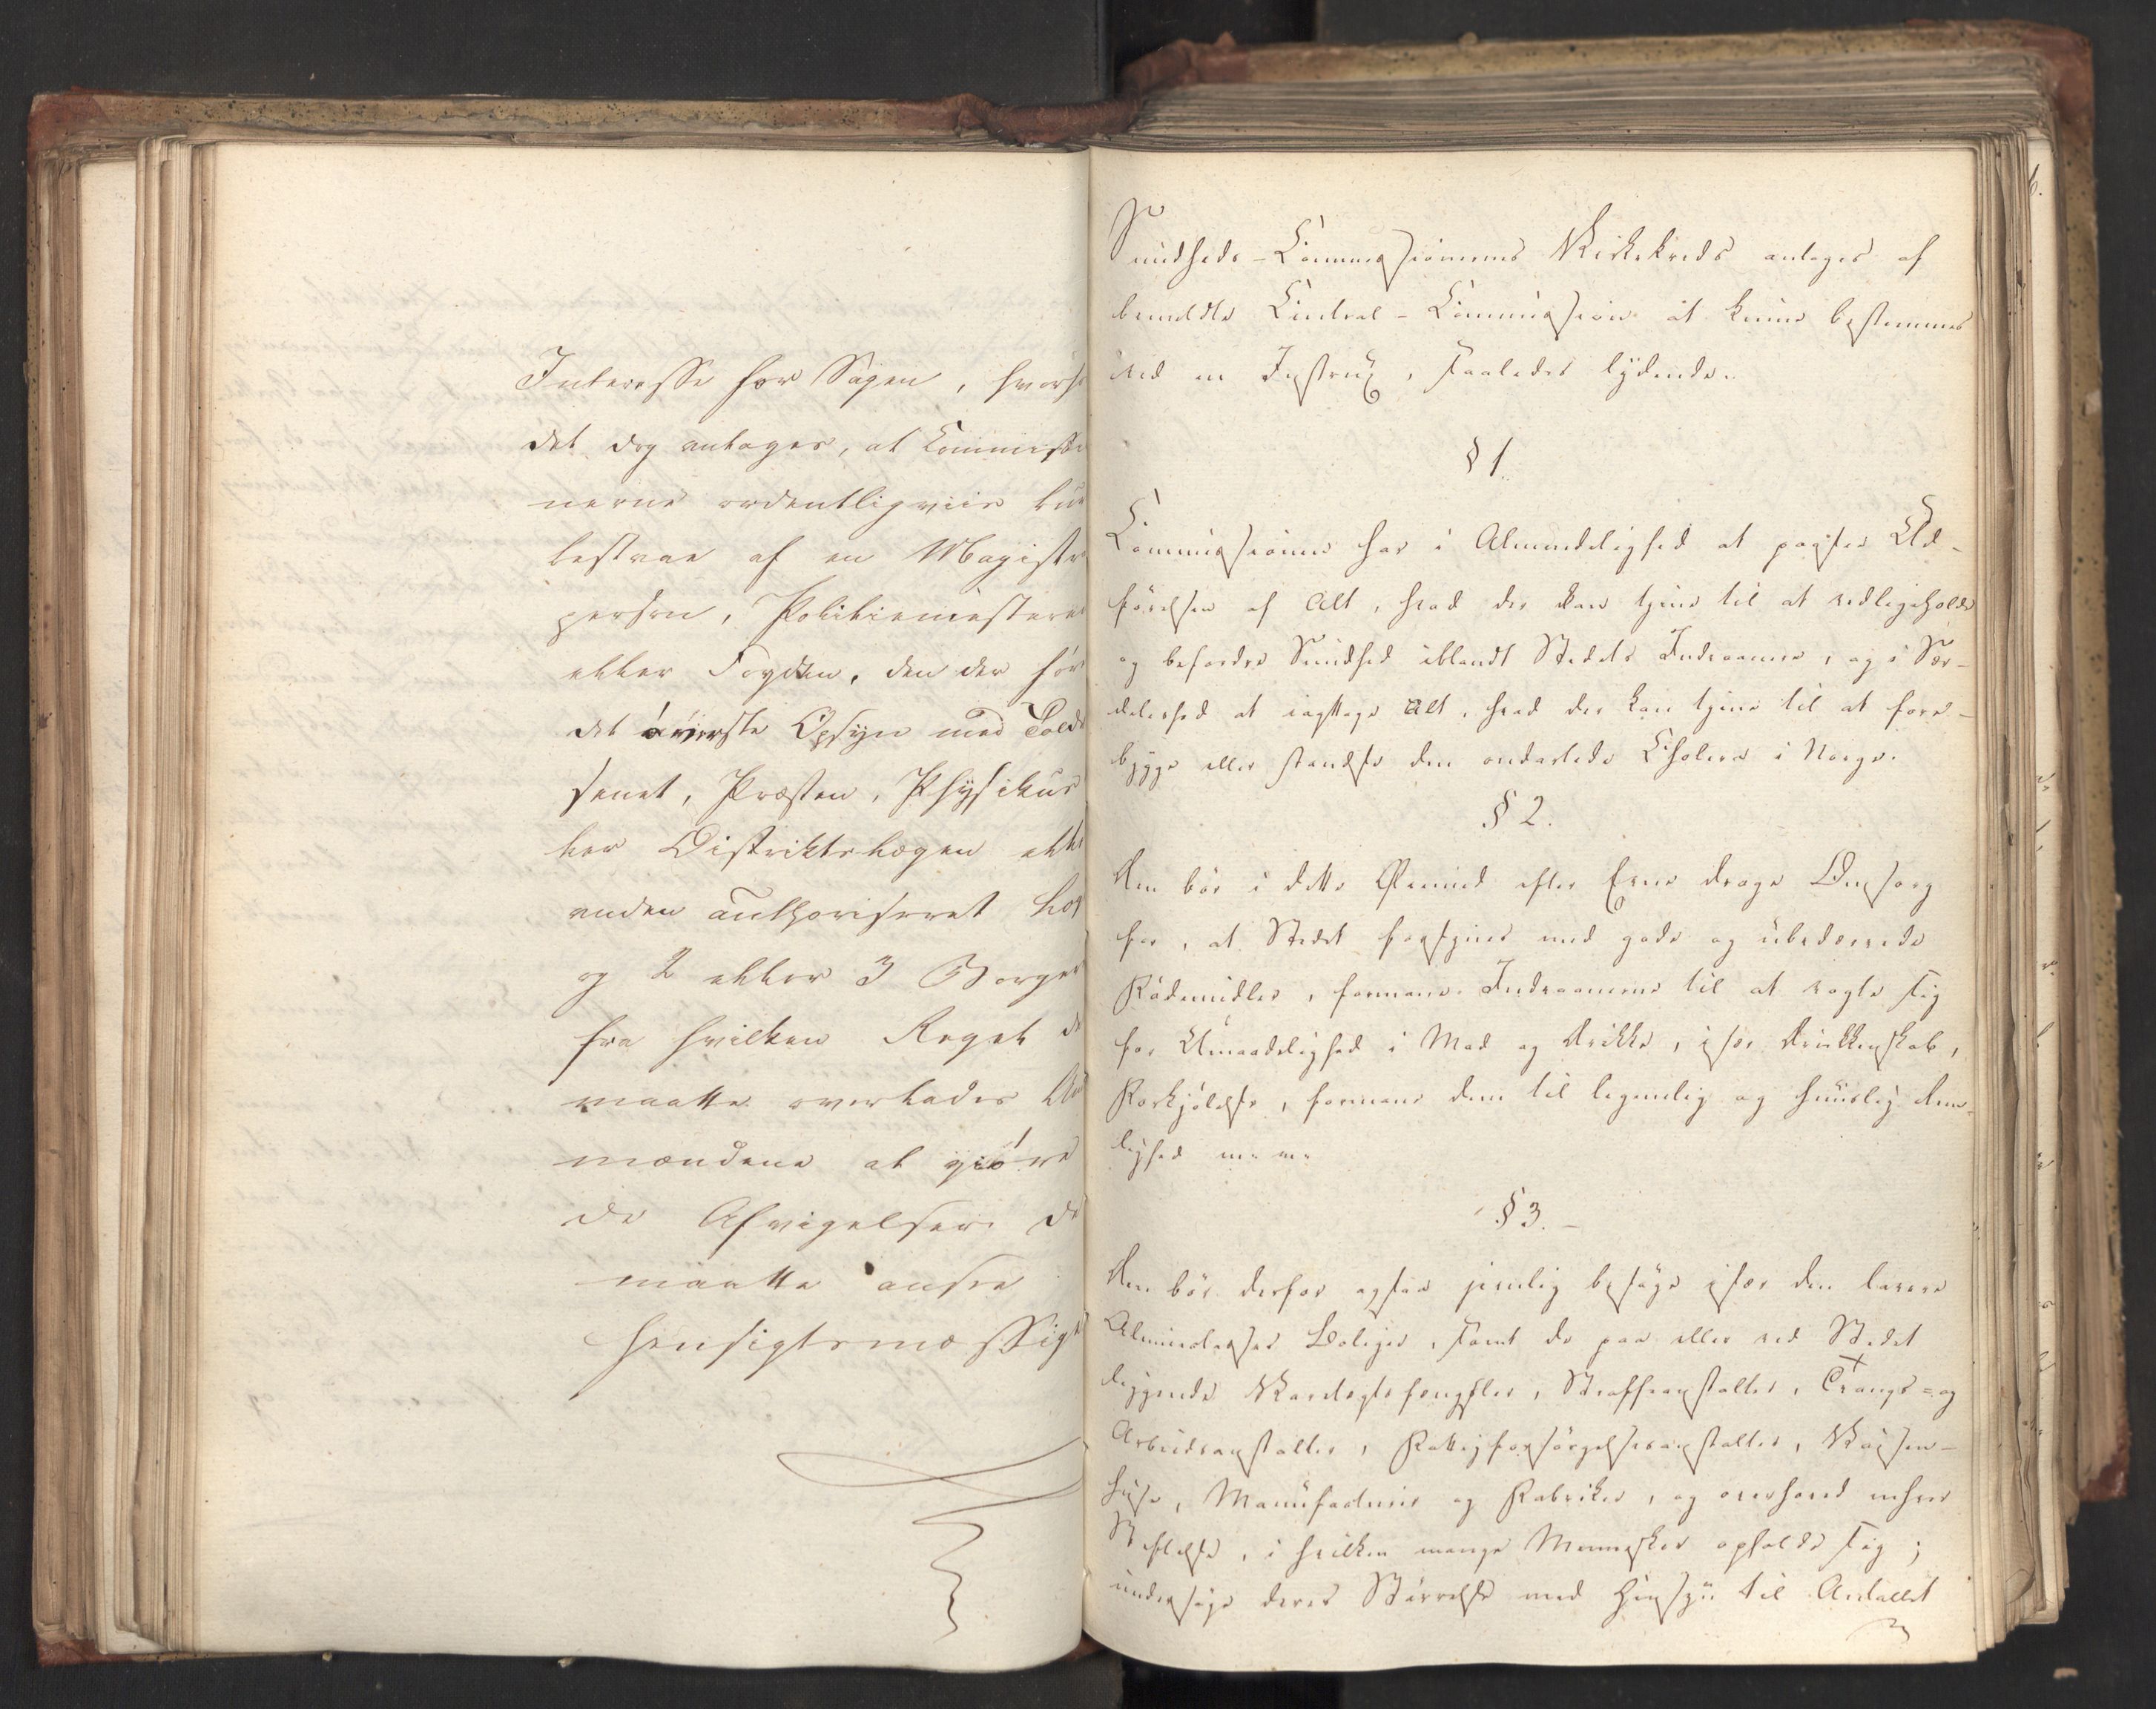 Interesse for Sagen, hvorfo
det dog antages, at Commissio
nerne ordentligviis kun
bestaae af en Magistra
person, Politiemesteren
eller Fogden, den der før
det øverste Opsyn med Told
senet, Præsten, Physikus
ler Distriktslægen elle
anden authoriseret Læg
og 2 eller 3 Borger
fra hvilken Regel de
maatte overlades Am
mændene at giøre
de Afvigelser de
maatte ansee
hensigtsmæssige
Sundheds-Commissionens Virkekreds antages af
bemeldte Central-Commission at kunne bestemmes
ved en Instrux, saaledes lydende.
§ 1.
Commissionen har i Almindelighed at paasee Ud-
førelsen af Alt, hvad der kan tjene til at vedligeholde
og befordre Sundhed iblandt Stedets Indvaanere, og i Sær-
deleshed at iagttage Alt, hvad der kan tjene til at fore-
bygge eller standse den ondartede Cholera i Norge.
§ 2.
Den bör i dette Øiemed efter Evne drage Omsorg
for, at Stedet forsynes med gode og ubedærvede
Födemidler, formane Indvaanerne til at vogte sig
for Umaadelighed i Mad og Drikke, især Drukkenskab,
Forkjølelse, formane dem til legemlig og huuslig Reen-
lighed m. m.
§ 3.
Den bör derfor ogsaa jevnlig besøge især den lavere
Almueclasses Boliger, samt de paa eller ved Stedet
liggende Varetægtsfængsler, Straffeanstalter, Tvangs- og
Arbeidsanstalter, Fattigforsörgelsesanstalter, Vaisen-
huse, Manufacturer og Fabriker, og overhoved enhver
Steflelse, i hvilken mange Mennesker opholde sig;
undersöge deres Störrelse med Hensyn til Antallet